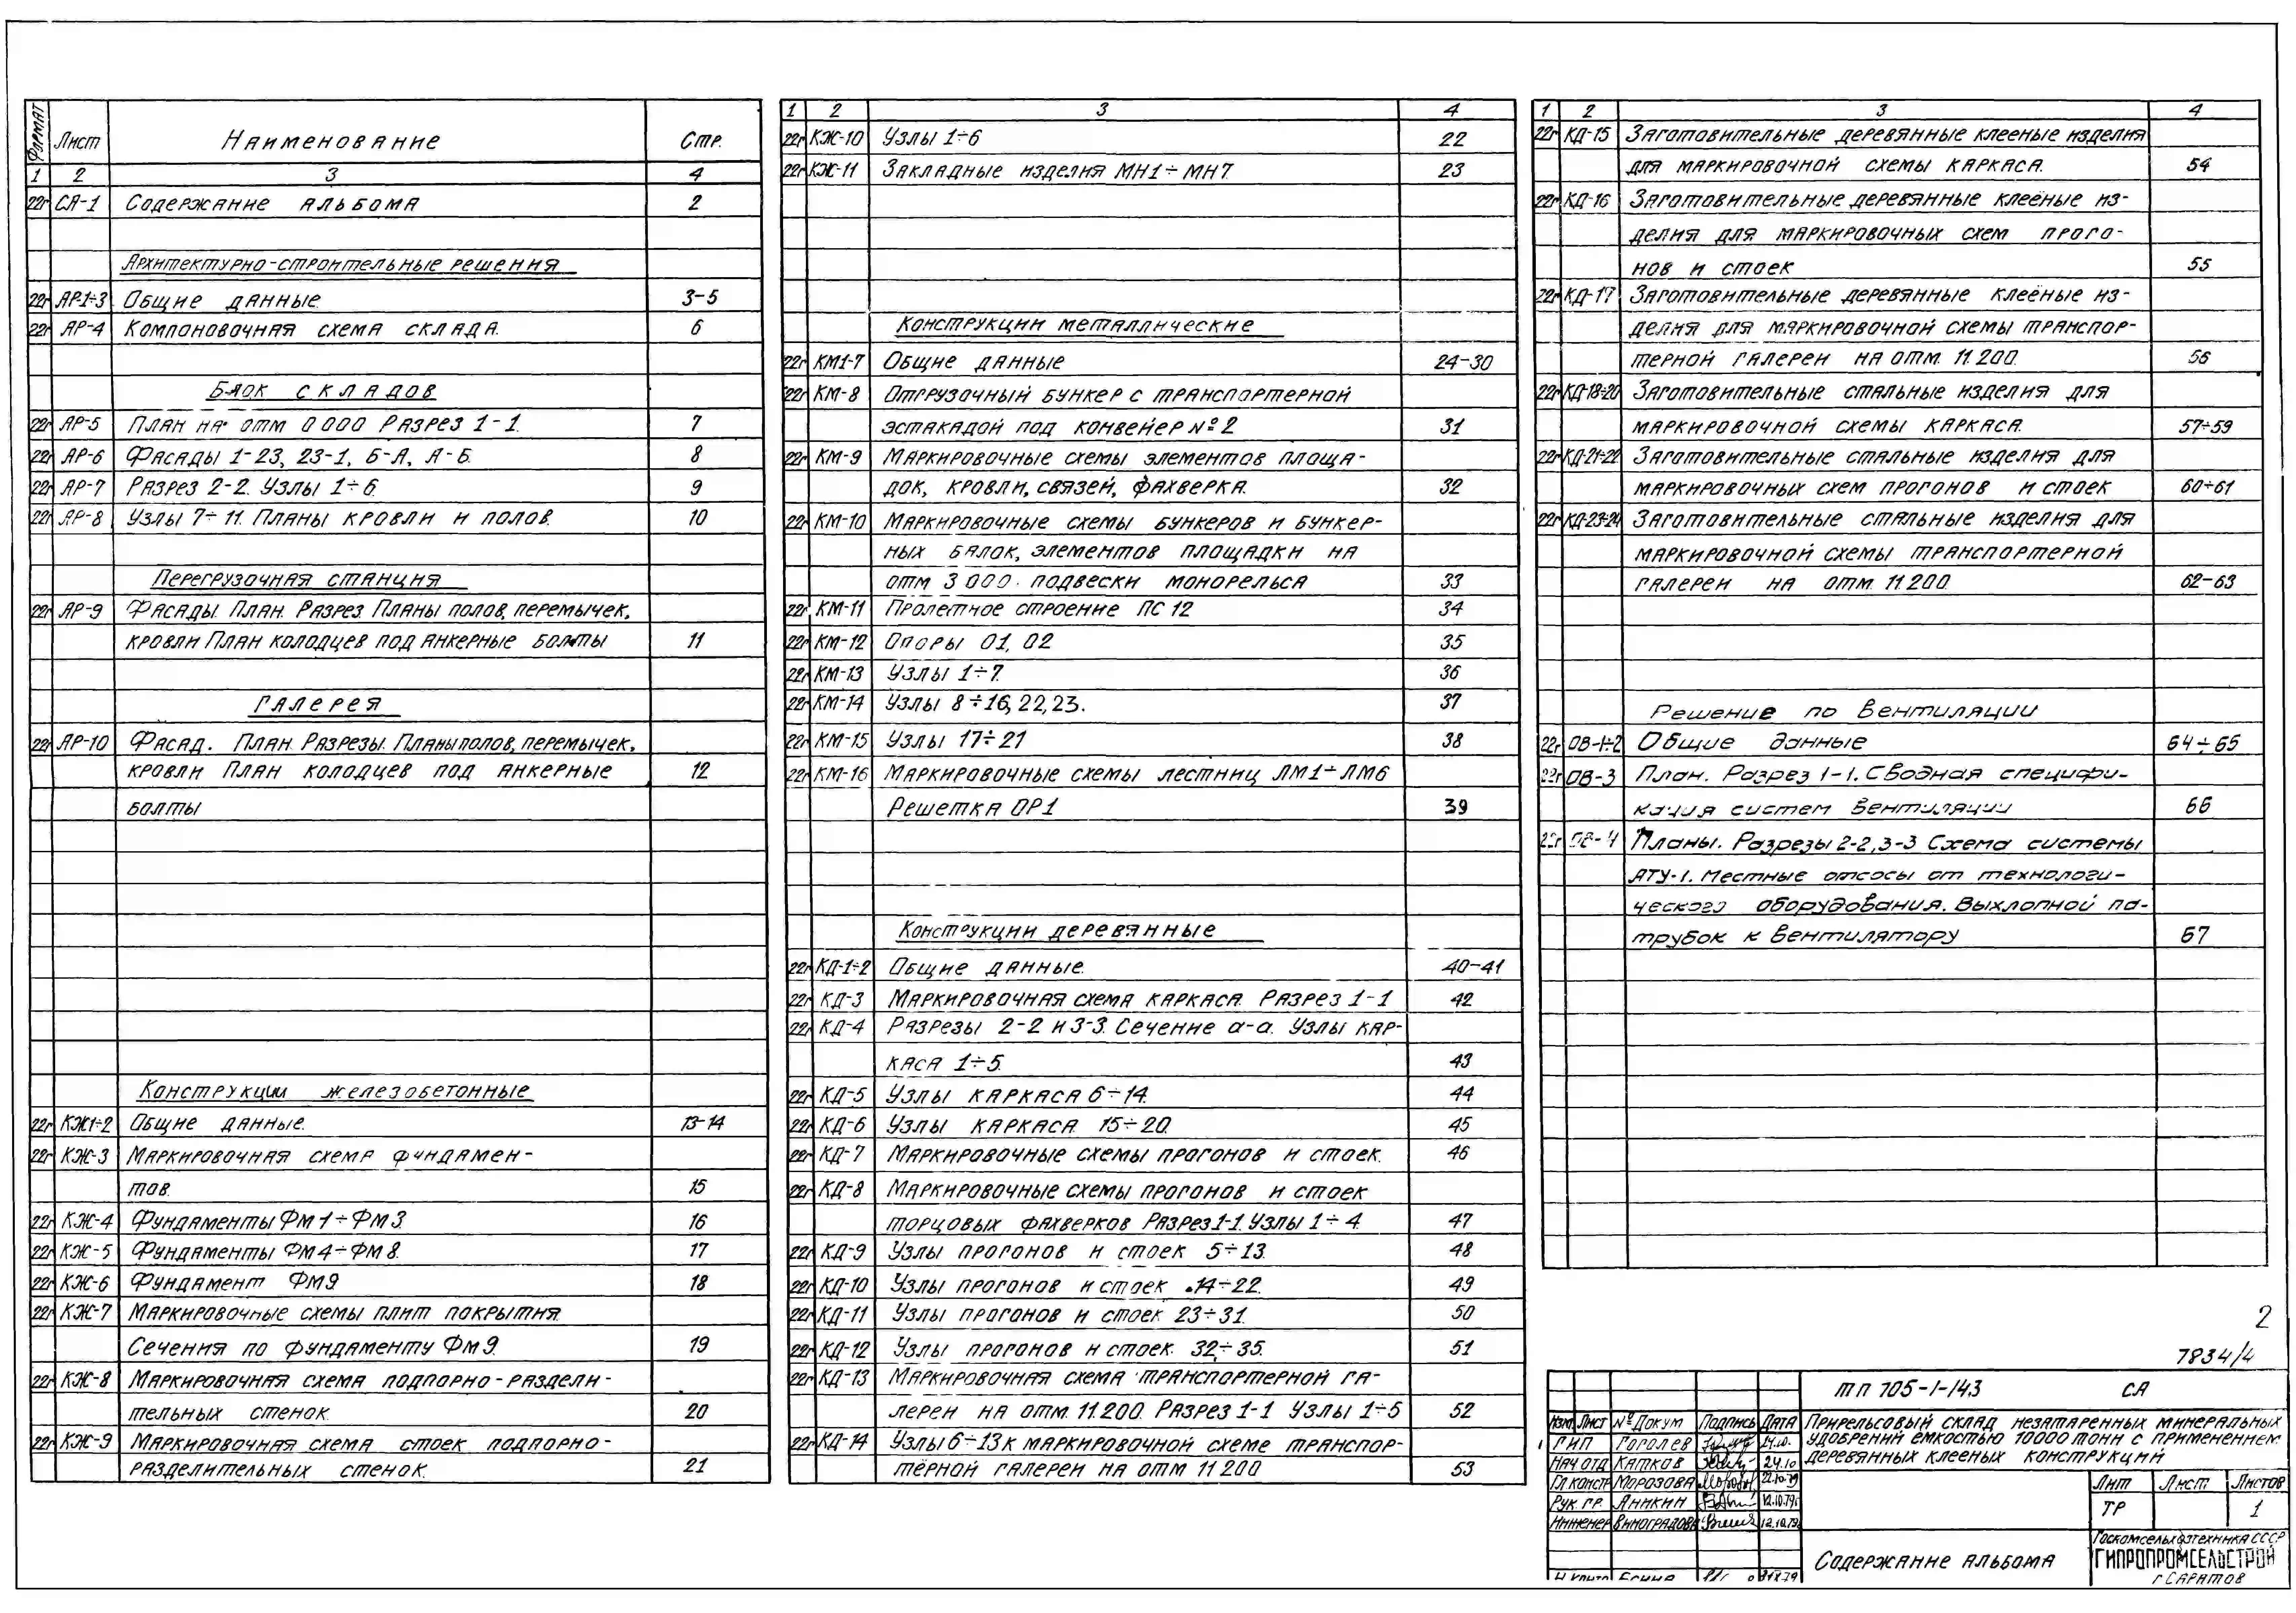 Формат Лист Наименование Стр.
1 2 3 4
22г СА-1 Содержание альбома 2
Архитектурно-строительные решения
22г АР1÷3 Общие данные. 3-5
22г АР-4 Компоновочная схема склада. 6
Блок складов
22г АР-5 План на отм 0 000 Разрез 1-1. 7
22г АР-6 Фасады 1-23, 23-1, Б-А, А-Б. 8
22г АР-7 Разрез 2-2. Узлы 1÷6. 9
22г АР-8 Узлы 7÷11. Планы кровли и полов. 10
Перегрузочная станция
22г АР-9 Фасады. План. Разрез. Планы полов, перемычек,
кровли План колодцев под анкерные болты 11
Галерея
22г АР-10 Фасад. План. Разрезы. Планы полов, перемычек,
кровли План колодцев под анкерные 12
болты
Конструкции железобетонные
22г КЖ1÷2 Общие данные. 13-14
22г КЖ-3 Маркировочная схема фундамен-
тов. 15
22г КЖ-4 Фундаменты Фм1÷Фм3 16
22г КЖ-5 Фундаменты Фм4÷Фм8. 17
22г КЖ-6 Фундамент Фм9 18
22г КЖ-7 Маркировочные схемы плит покрытия.
Сечения по фундаменту Фм9. 19
22г КЖ-8 Маркировочная схема подпорно-раздели-
тельных стенок. 20
22г КЖ-9 Маркировочная схема стоек подпорно-
разделительных стенок. 21
1 2 3 4
22г КЖ-10 Узлы 1÷6 22
22г КЖ-11 Закладные изделия МН1÷МН7. 23
Конструкции металлические
22г КМ1-7 Общие данные 24-30
22г КМ-8 Отгрузочный бункер с транспортерной
эстакадой под конвейер №2 31
22г КМ-9 Маркировочные схемы элементов площа-
док, кровли, связей, фахверка. 32
22г КМ-10 Маркировочные схемы бункеров и бункер-
ных балок, элементов площадки на
отм 3 000. подвески монорельса 33
22г КМ-11 Пролетное строение ПС12 34
22г КМ-12 Опоры О1, О2 35
22г КМ-13 Узлы 1÷7. 36
22г КМ-14 Узлы 8÷16, 22, 23. 37
22г КМ-15 Узлы 17÷21 38
22г КМ-16 Маркировочные схемы лестниц ЛМ1÷ЛМ6
Решетка ОР1 39
Конструкции деревянные
22г КД-1÷2 Общие данные. 40-41
22г КД-3 Маркировочная схема каркаса. Разрез 1-1 42
22г КД-4 Разрезы 2-2 и 3-3. Сечение а-а. Узлы кар-
каса 1÷5. 43
22г КД-5 Узлы каркаса 6÷14. 44
22г КД-6 Узлы каркаса 15÷20. 45
22г КД-7 Маркировочные схемы прогонов и стоек. 46
22г КД-8 Маркировочные схемы прогонов и стоек
торцовых фахверков Разрез 1-1. Узлы 1÷4. 47
22г КД-9 Узлы прогонов и стоек 5÷13. 48
22г КД-10 Узлы прогонов и стоек 14÷22. 49
22г КД-11 Узлы прогонов и стоек 23÷31. 50
22г КД-12 Узлы прогонов и стоек. 32÷35. 51
22г КД-13 Маркировочная схема транспортерной га-
лереи на отм. 11.200. Разрез 1-1 Узлы 1÷5 52
22г КД-14 Узлы 6÷13 к маркировочной схеме транспор-
тёрной галереи на отм 11 200 53
1 2 3 4
22г КД-15 Заготовительные деревянные клееные изделия
для маркировочной схемы каркаса. 54
22г КД-16 Заготовительные деревянные клеёные из-
делия для маркировочных схем прого-
нов и стоек 55
22г КД-17 Заготовительные деревянные клеёные из-
делия для маркировочной схемы транспор-
терной галереи на отм. 11.200. 56
22г КД-18÷20 Заготовительные стальные изделия для
маркировочной схемы каркаса. 57÷59
22г КД-21÷22 Заготовительные стальные изделия для
маркировочных схем прогонов и стоек 60÷61
22г КД-23-24 Заготовительные стальные изделия для
маркировочной схемы транспортерной
галереи на отм. 11.200. 62-63
Решение по вентиляции
22г ОВ-1÷2 Общие данные 64÷65
22г ОВ-3 План. Разрез 1-1. Сводная специфи-
кация систем вентиляции 66
22г ОВ-4 Планы. Разрезы 2-2, 3-3 Схема системы
АТУ-1. Местные отсосы от технологи-
ческого оборудования. Выхлопной па-
трубок к вентилятору 67
2
7834/4
ТП 705-1-143 СА
Изм. Лист № докум Подпись Дата
ГИП Гоголев 24.10.
Нач отд Катков 24.10
Гл констр Морозова 22.10.79
Рук гр. Аникин 12.10.79г
Инженер Виноградова 12.10.79
Н контр
Прирельсовый склад незатаренных минеральных
удобрений емкостью 10000 тонн с применением
деревянных клееных конструкций
Лит Лист Листов
ТР 1
Содержание альбома
Госкомсельхозтехника СССР
ГИПРОПРОМСЕЛЬСТРОЙ
г Саратов